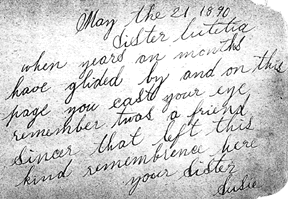 May the 21 1890
Sister lutitia
when years an months
have glided by and on this
page you cast your eye
remember twas a friend
sincer that left this
kind remembrence here
your sister
Susie